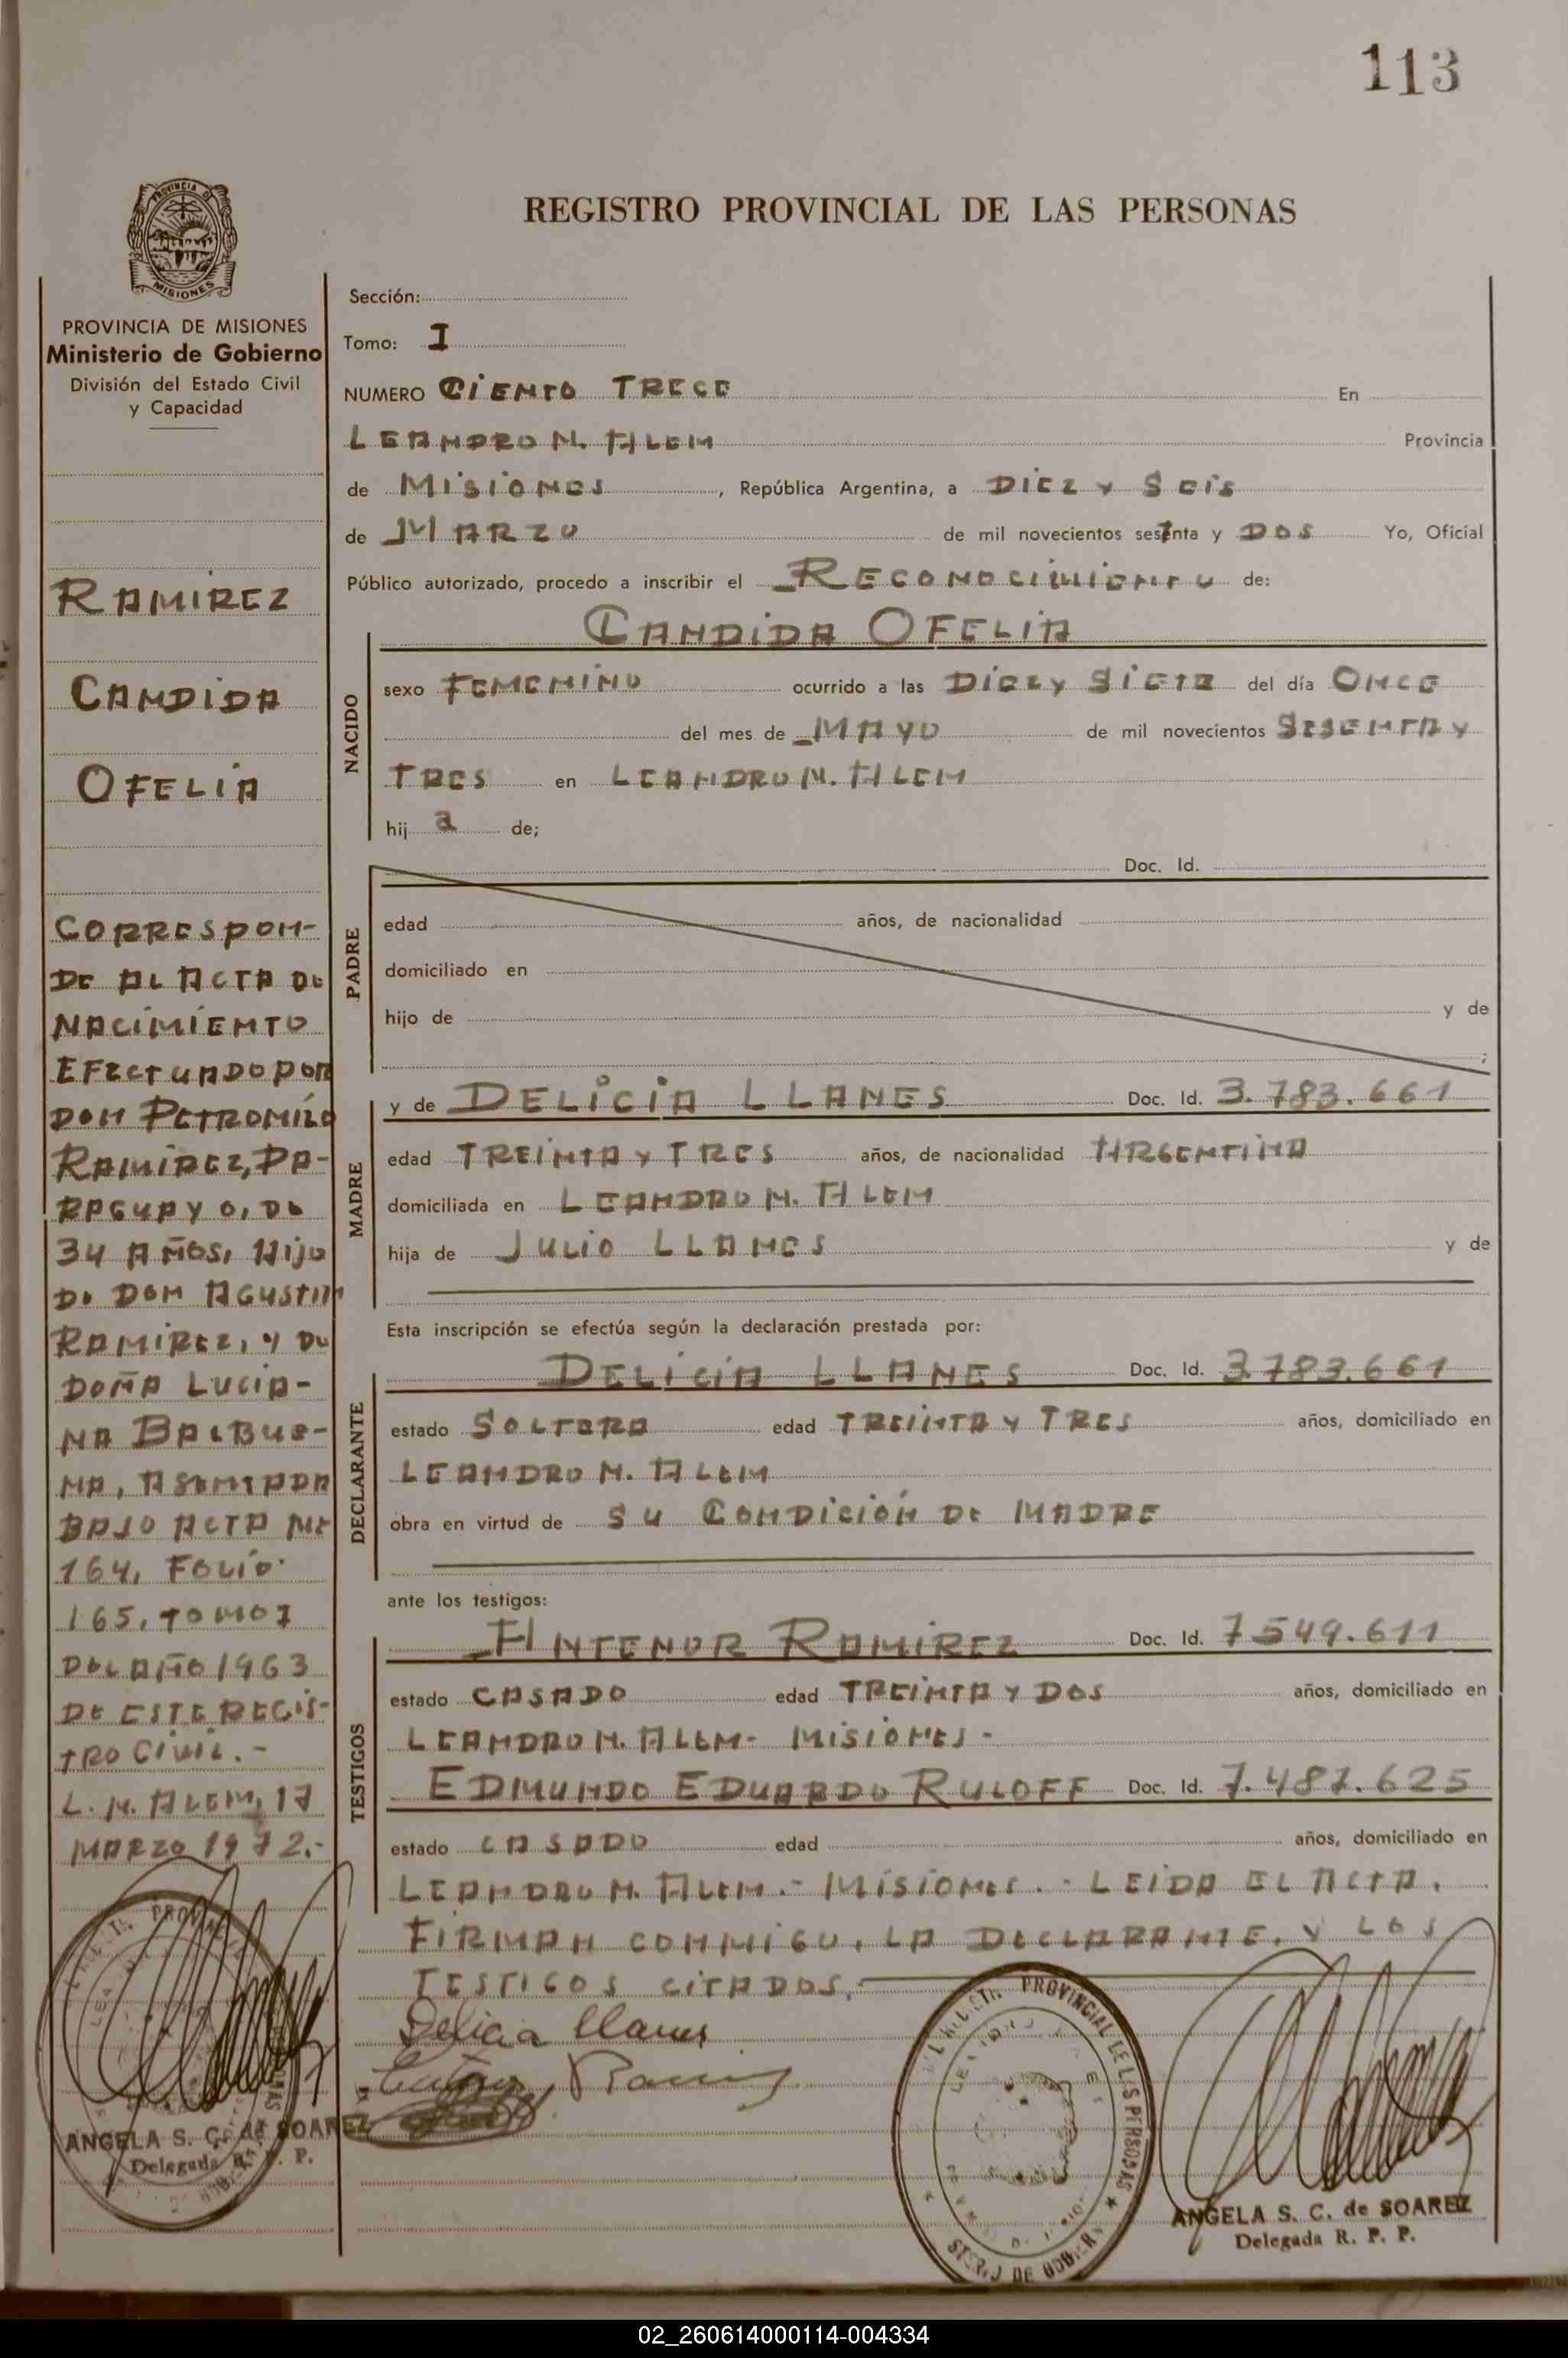 113
REGISTRO PROVINCIAL DE LAS PERSONAS
MISIONES
PROVINCIA DE MISIONES
Ministerio de Gobierno
División del Estado Civil
y Capacidad
RAMIREZ
CANDIDA
OFELIA
CORRESPON-
DE AL ACTA DE
NACIMIENTO
EFECTUADO POR
DON PETRONILO
RAMIREZ, PA-
RAGUAYO, DE
34 AÑOS, HIJO
DE DON AGUSTIN
RAMIREZ, Y DE
DOÑA LUCIA-
NA BALBUE-
NA, ASENTADA
BAJO ACTA Nº
164, FOLIO
165, TOMO I
DEL AÑO 1963
DE ESTE REGIS-
TRO CIVIL.-
L. N. ALEM, 17
MARZO 1972.-
ANGELA S. C. de SOAREZ
Delegada R. P. P.
Sección:
Tomo: I
NUMERO CIENTO TRECE En
LEANDRO N. ALEM Provincia
de MISIONES, República Argentina, a DIEZ Y SEIS
de MARZO de mil novecientos setenta y DOS Yo, Oficial
Público autorizado, procedo a inscribir el RECONOCIMIENTO de:
CANDIDA OFELIA
NACIDO
sexo FEMENINO ocurrido a las DIEZ Y SIETE del día ONCE
del mes de MAYO de mil novecientos SESENTA Y
TRES en LEANDRO N. ALEM
hij a de;
PADRE
Doc. Id.
edad años, de nacionalidad
domiciliado en
hijo de y de
;
MADRE
y de DELICIA LLANES Doc. Id. 3.783.661
edad TREINTA Y TRES años, de nacionalidad ARGENTINA
domiciliada en LEANDRO N. ALEM
hija de JULIO LLANES y de
Esta inscripción se efectúa según la declaración prestada por:
DECLARANTE
DELICIA LLANES Doc. Id. 3.783.661
estado SOLTERA edad TREINTA Y TRES años, domiciliado en
LEANDRO N. ALEM
obra en virtud de SU CONDICIÓN DE MADRE
ante los testigos:
TESTIGOS
ANTENOR RAMIREZ Doc. Id. 7549.611
estado CASADO edad TREINTA Y DOS años, domiciliado en
LEANDRO N. ALEM- MISIONES-
EDMUNDO EDUARDO RULOFF Doc. Id. 7.487.625
estado CASADO edad años, domiciliado en
LEANDRO N. ALEM.- MISIONES.- LEIDA EL ACTA,
FIRMAN CONMIGO, LA DECLARANTE, Y LOS
TESTIGOS CITADOS.
Delicia Llanes
PROVINCIAL DE LAS PERSONAS
ANGELA S. C. de SOAREZ
Delegada R. P. P.
02_260614000114-004334